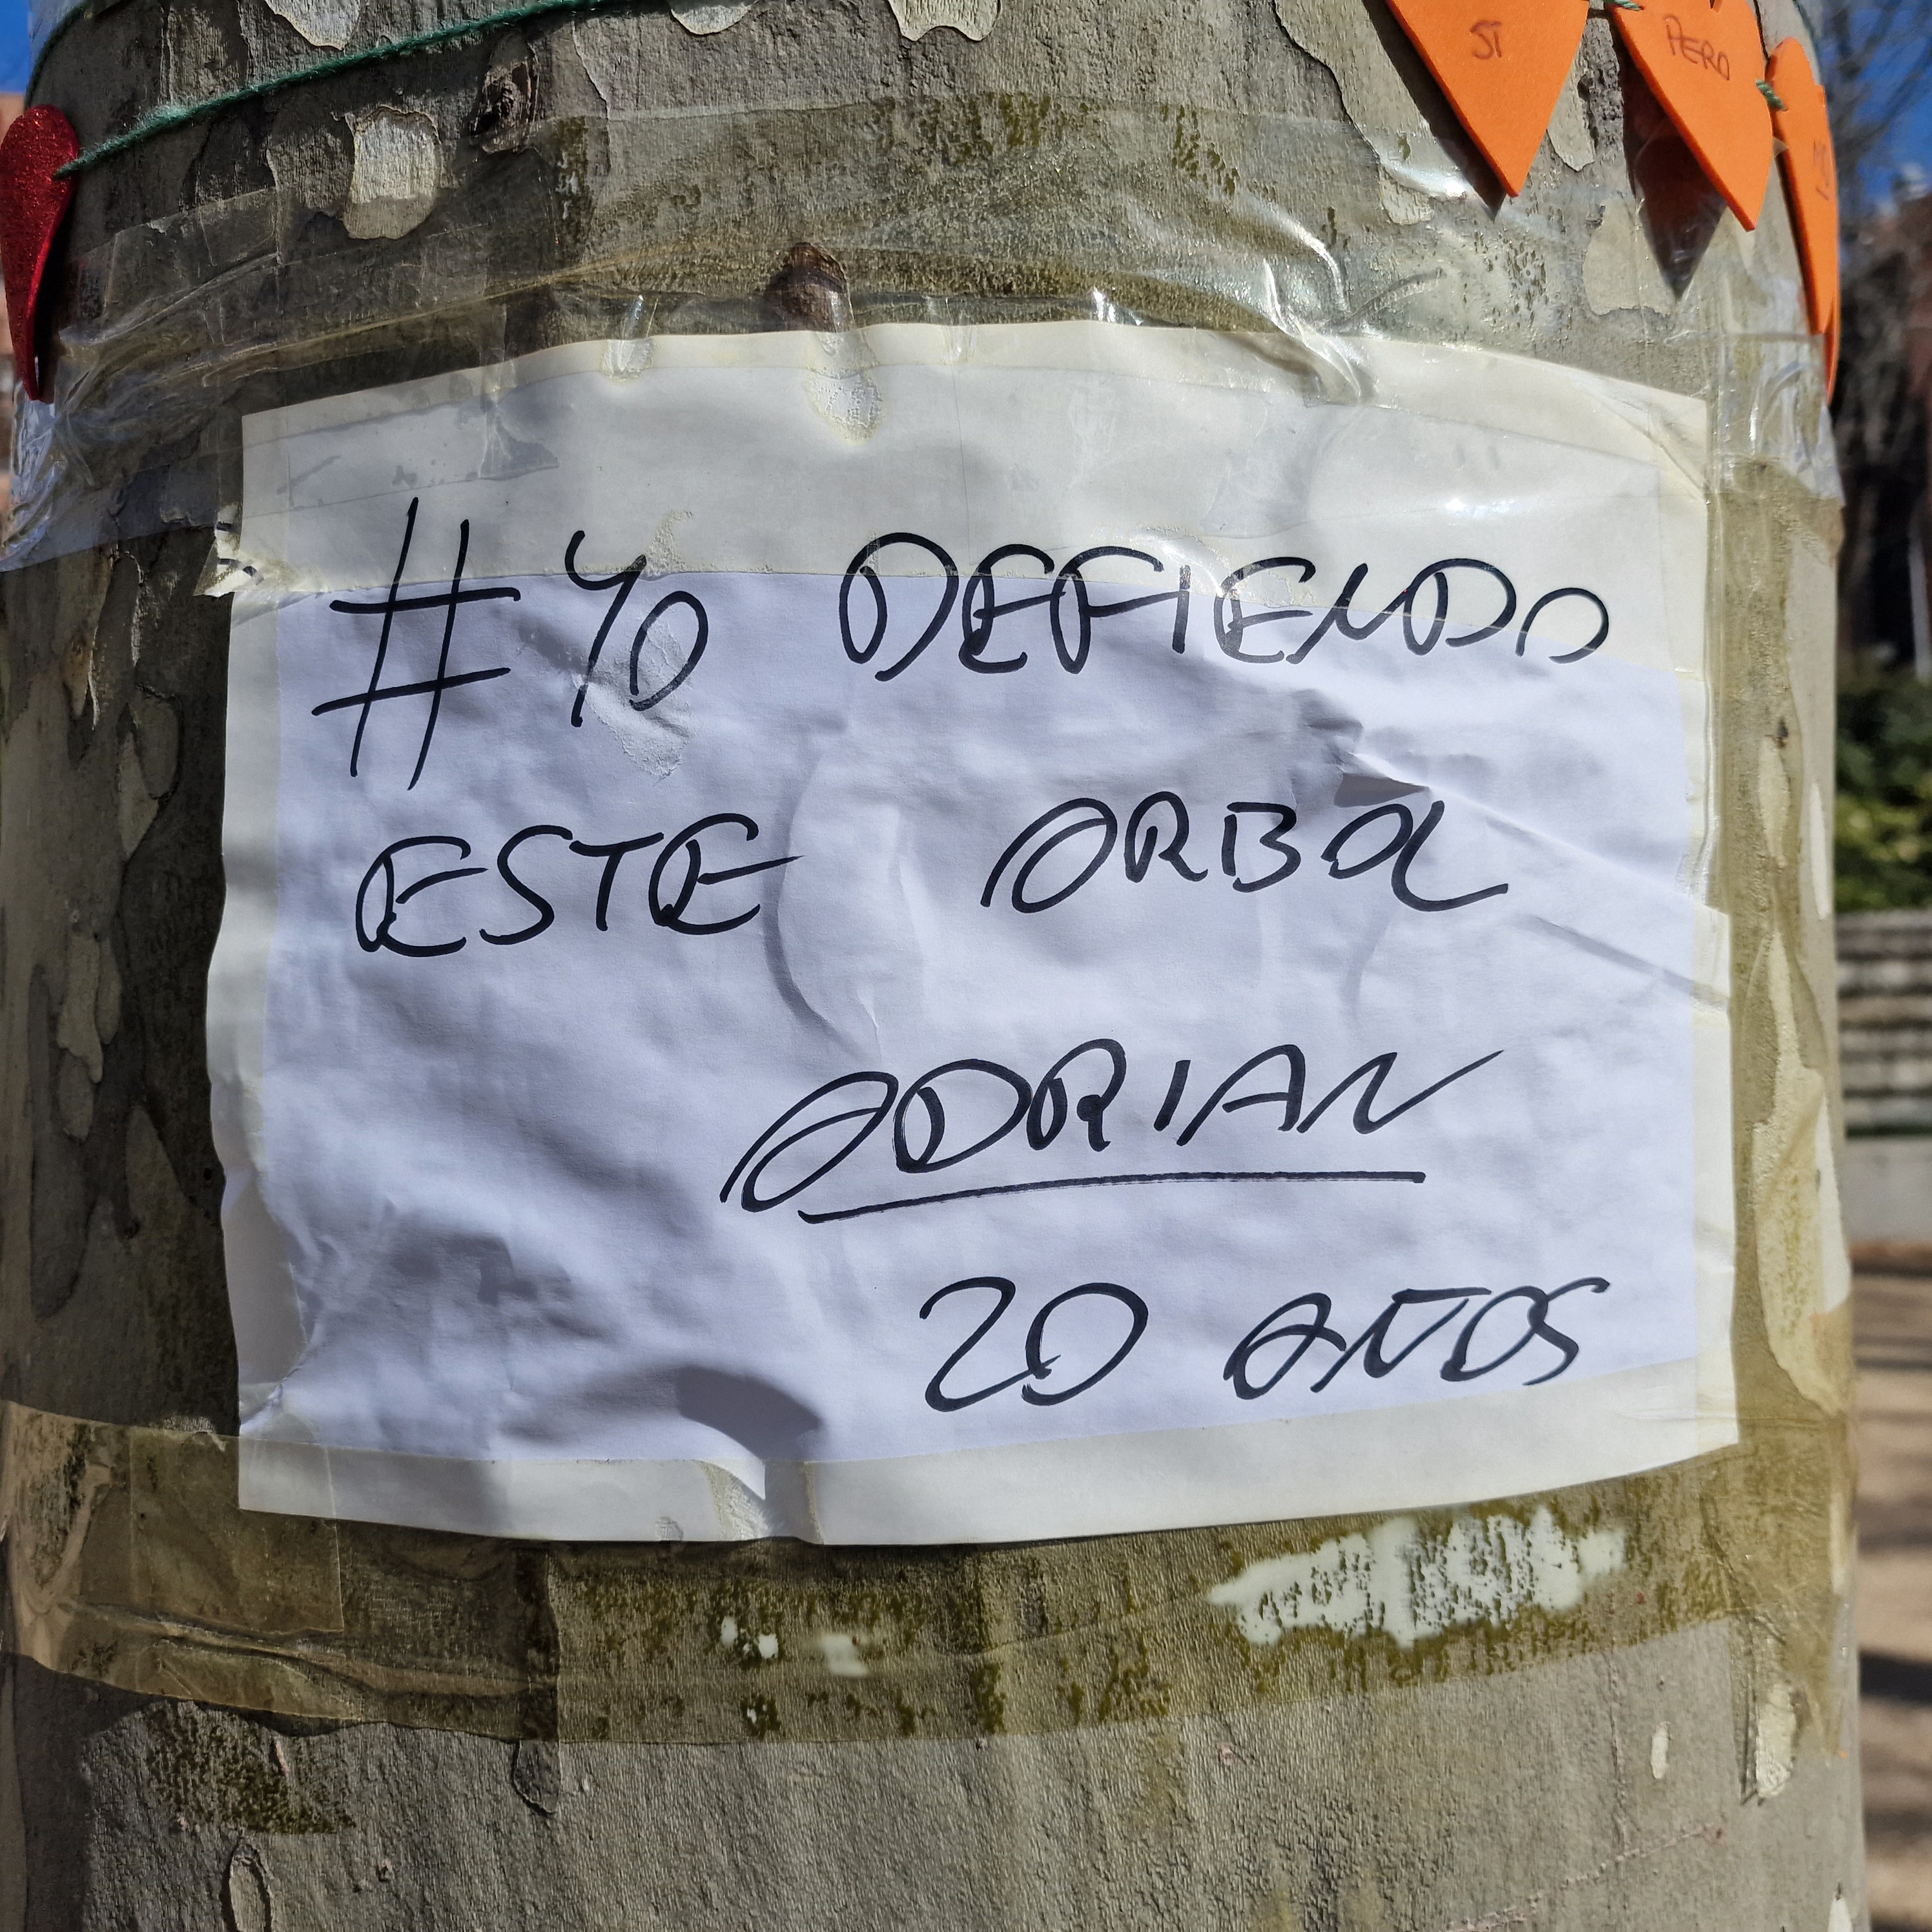 SI
PERO
#YO DEFIENDO
ESTE ARBOL
ADRIAN
20 AÑOS